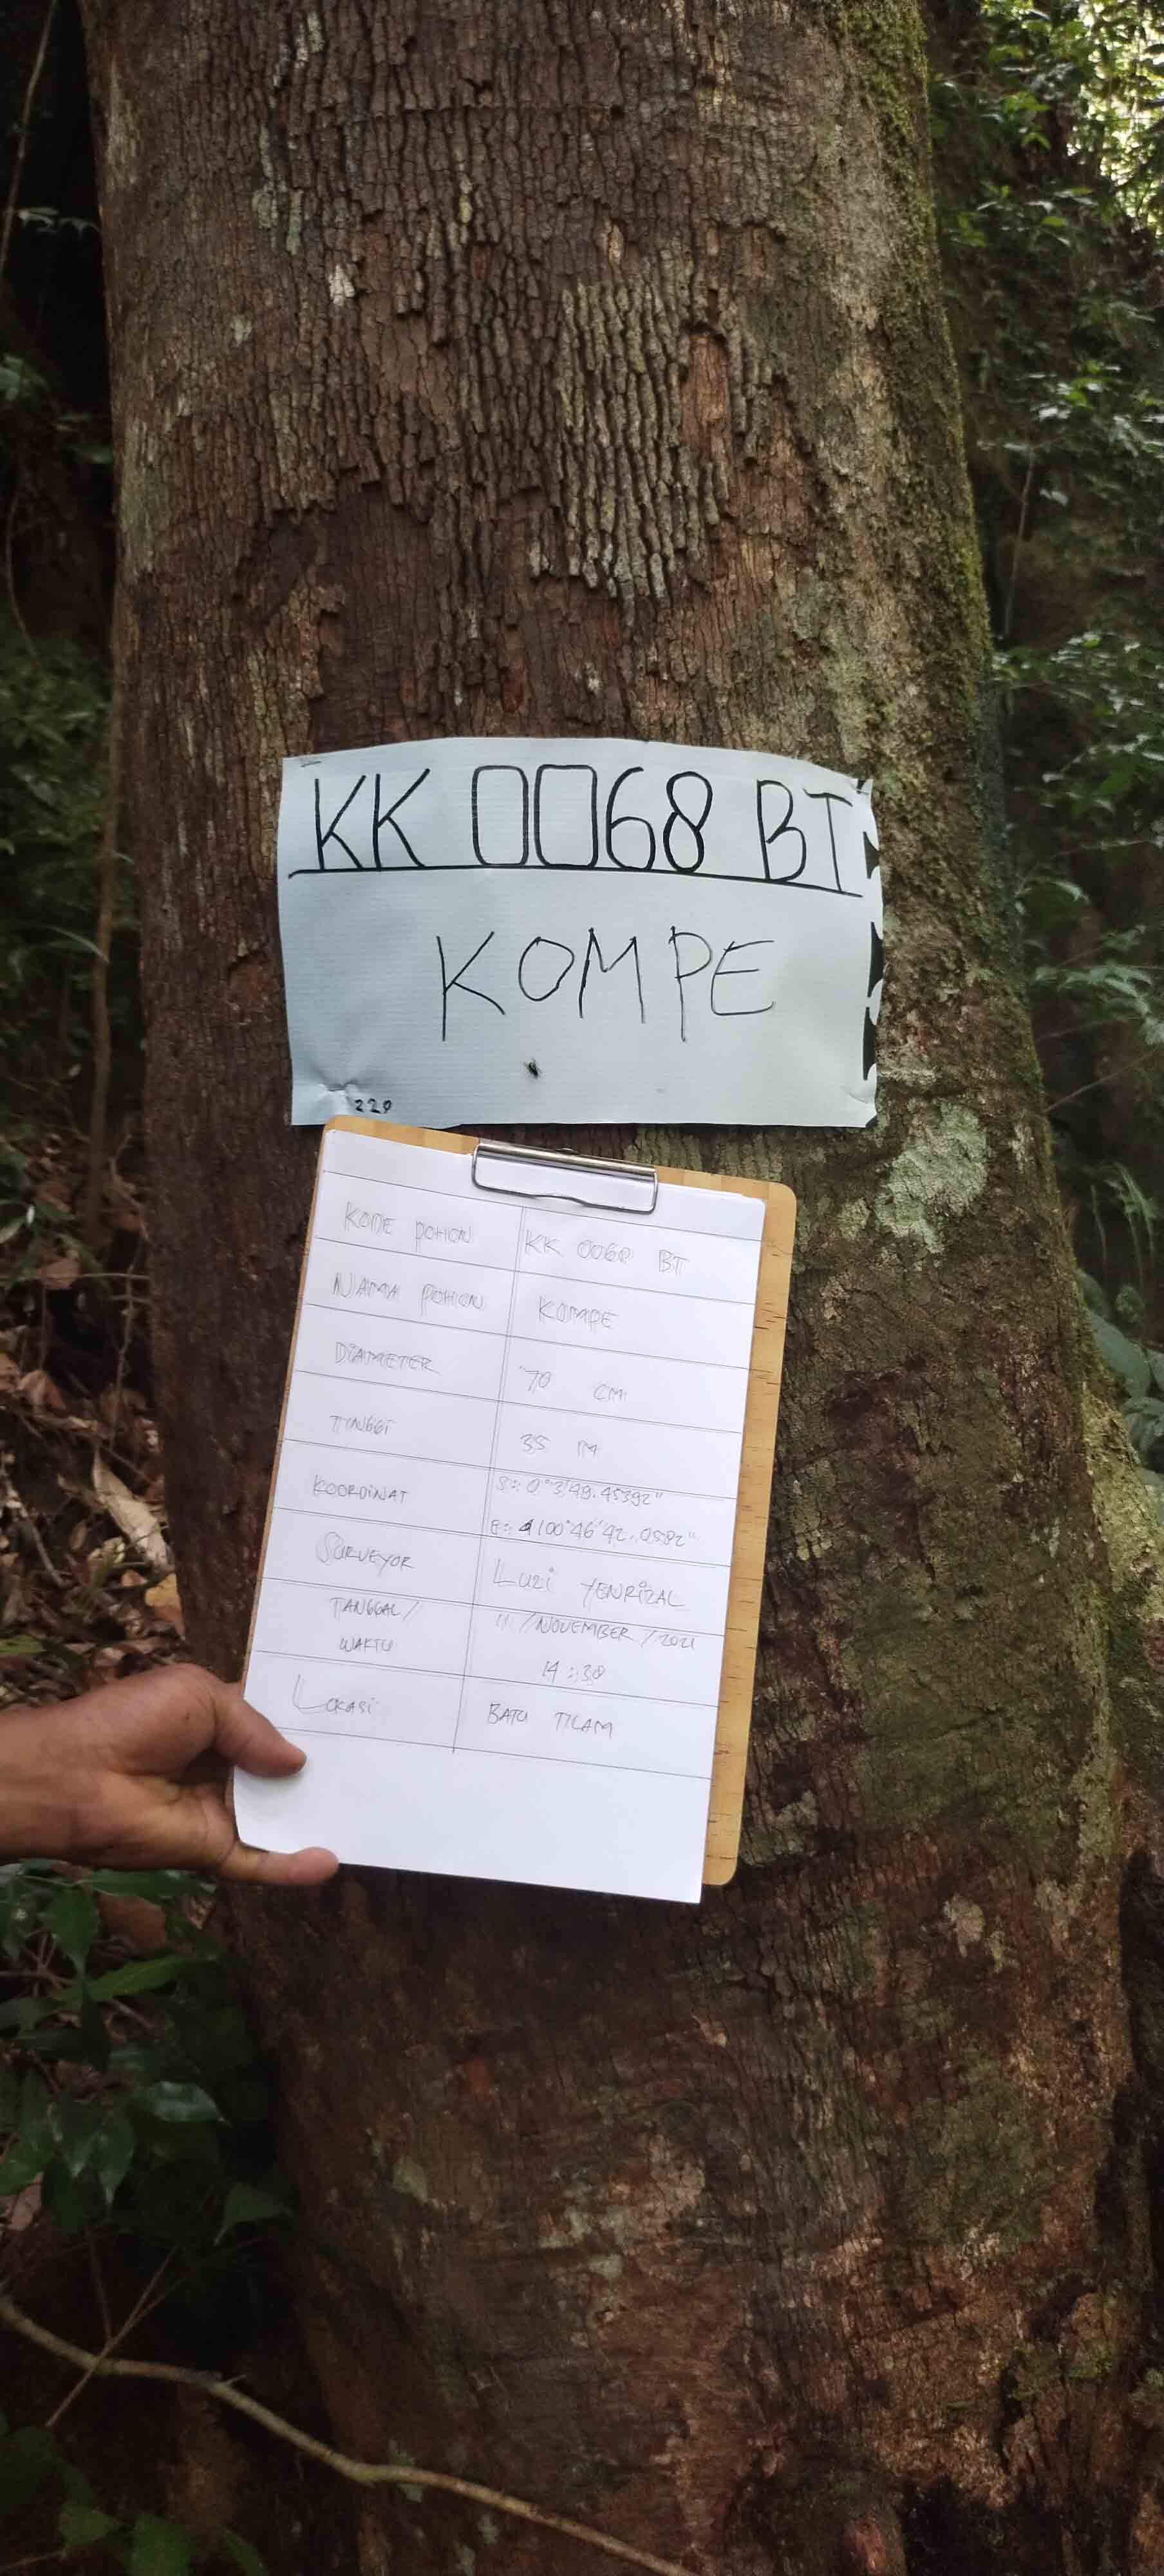 KK 0068 BT
KOMPE
220
KODE POHON KK 0068 BT
NAMA POHON KOMPE
DIAMETER 70 CM
TINGGI 35 M
KOORDINAT S: 0°3'49.45392"
E: 100°46'42.0582"
SURVEYOR LUZI YENRIZAL
TANGGAL/ 11/NOVEMBER/2021
WAKTU 14:38
LOKASI BATU TILAM